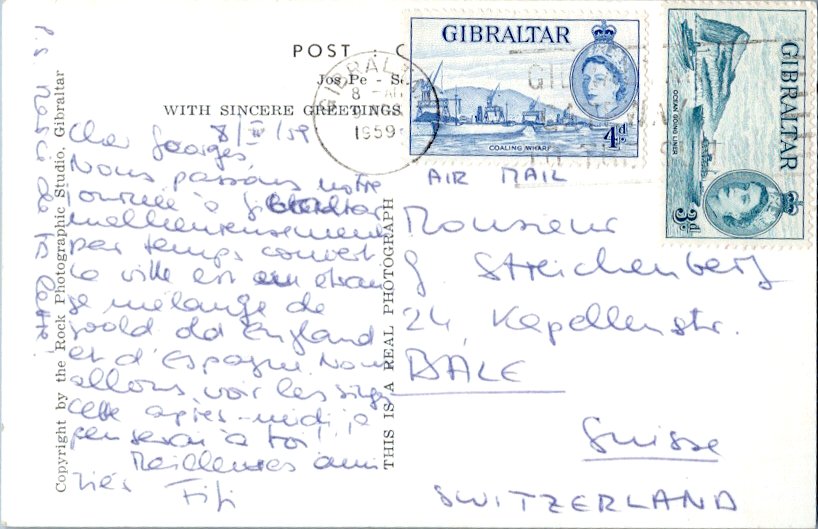 POST
Jos. Pe
WITH SINCERE GREETINGS
8/IV/59
Cher Georges,
Nous passons notre
journée à Gibraltar
malheureusement
par temps couvert
La ville est un étran
ge mélange de
good old England
et d'Espagne. Nous
allons voir les singes
cette après-midi, je
penserai à toi!
Meilleures ami
tiés Fifi
p.s. Merci de ta lettre!
Copyright by the Rock Photographic Studio, Gibraltar
THIS IS A REAL PHOTOGRAPH
GIBRALTAR
1959
GIBRALTAR
COALING WHARF
4d.
GIBRALTAR
OCEAN GOING LINER
3d.
AIR MAIL
Monsieur
G. Streichenberg
24, Kapellenstr.
BÂLE
Suisse
SWITZERLAND